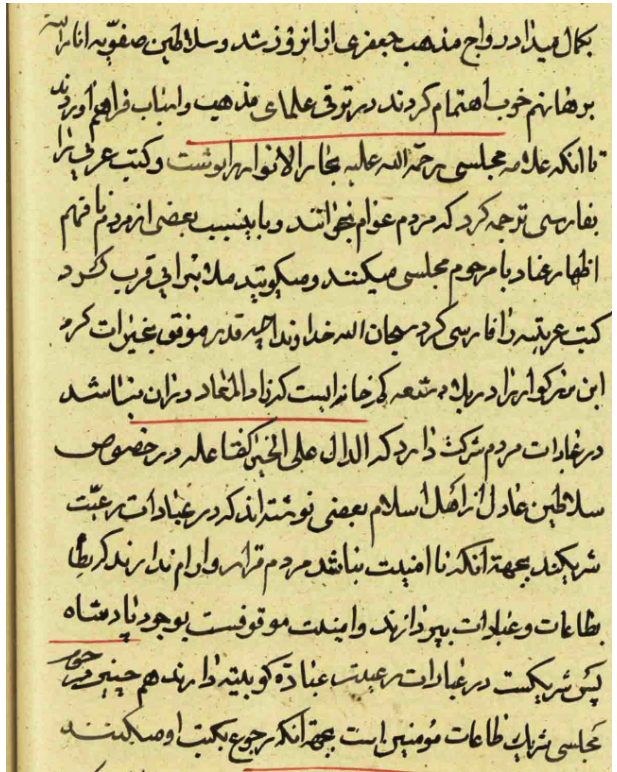 بکمال میداد رواج مذهب جعفری از انروز شد و سلاطین صفویه انار الله
برهانهم خوب اهتمام کردند در ترقی علمای مذهب و اسباب فراهم آوردند
تا انکه علامه مجلسی رحمة الله علیه بحار الانوار را نوشت و کتب عربی را
بفارسی ترجمه کرد که مردم عوام بخوانند و باینسبب بعضی از مردم نافهم
اظهار عناد با مرحوم مجلسی میکنند و میکویند ملا برای قرب
کتب عربیه را فارسی کرد سبحان الله خداوند چه قدر موفق بخیرات کرد
این بزرکوار را در بلاد شیعه کم خانه ایست که زاد المعاد در ان نباشد
در عبادات مردم شرکت دارد که الدال علی الخیر کفاعله در خصوص
سلاطین عادل از اهل اسلام بعضی نوشته اند که در عبادات رعیت
شریکند بجهة انکه تا امنیت نباشد مردم قرار و ارام ندارند که
بطاعات و عبادات بپردازند و امنیت موقوفست بوجود پادشاه
پس شریکست در عبادات رعیت دارند هم چنین مرحوم
مجلسی شریک طاعات مؤمنین است بجهة انکه رجوع بکتب او میکنند